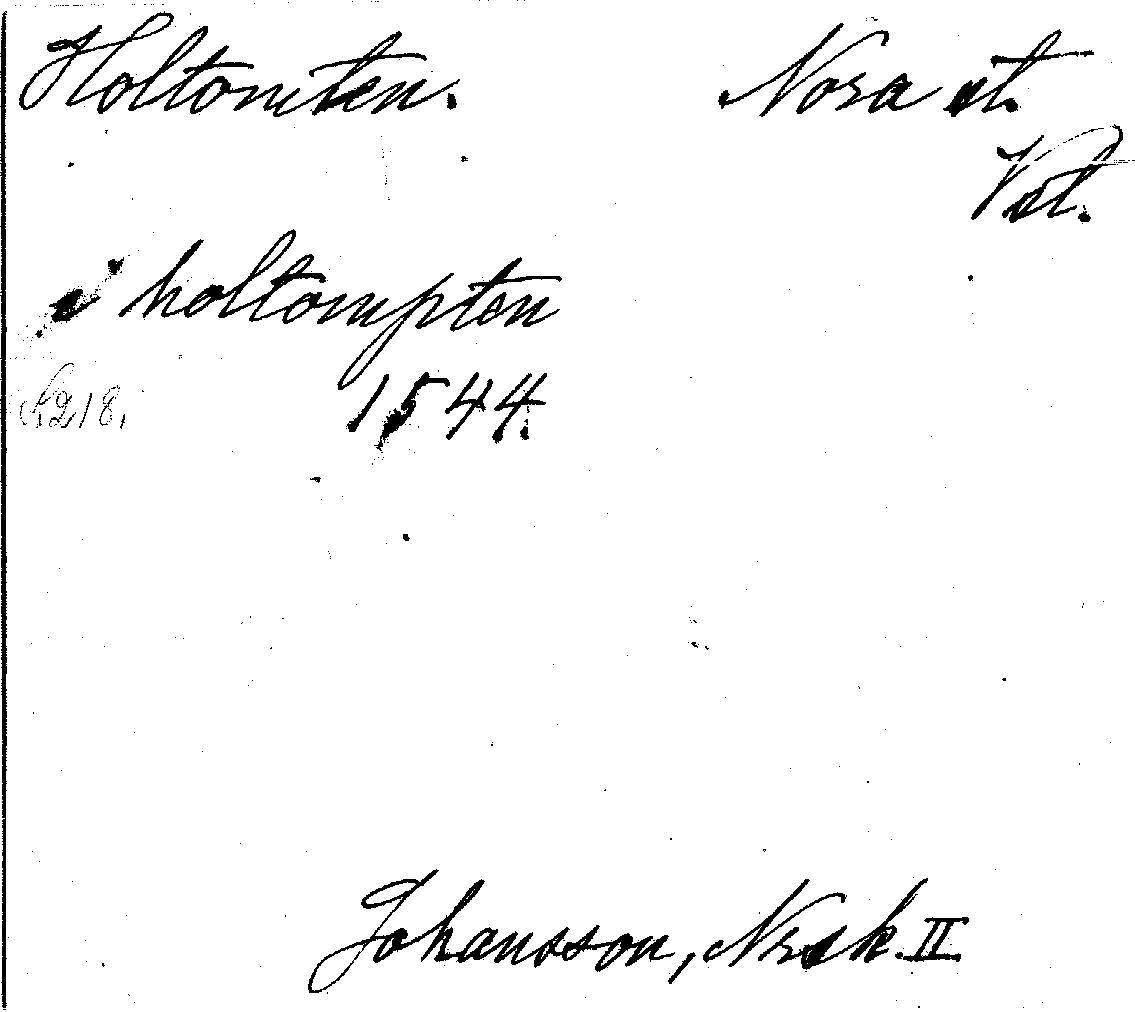 Holtomten. Nora st.
Vst.
i holtompten
1544.
S. 218.
Johansson, Nrsk. II